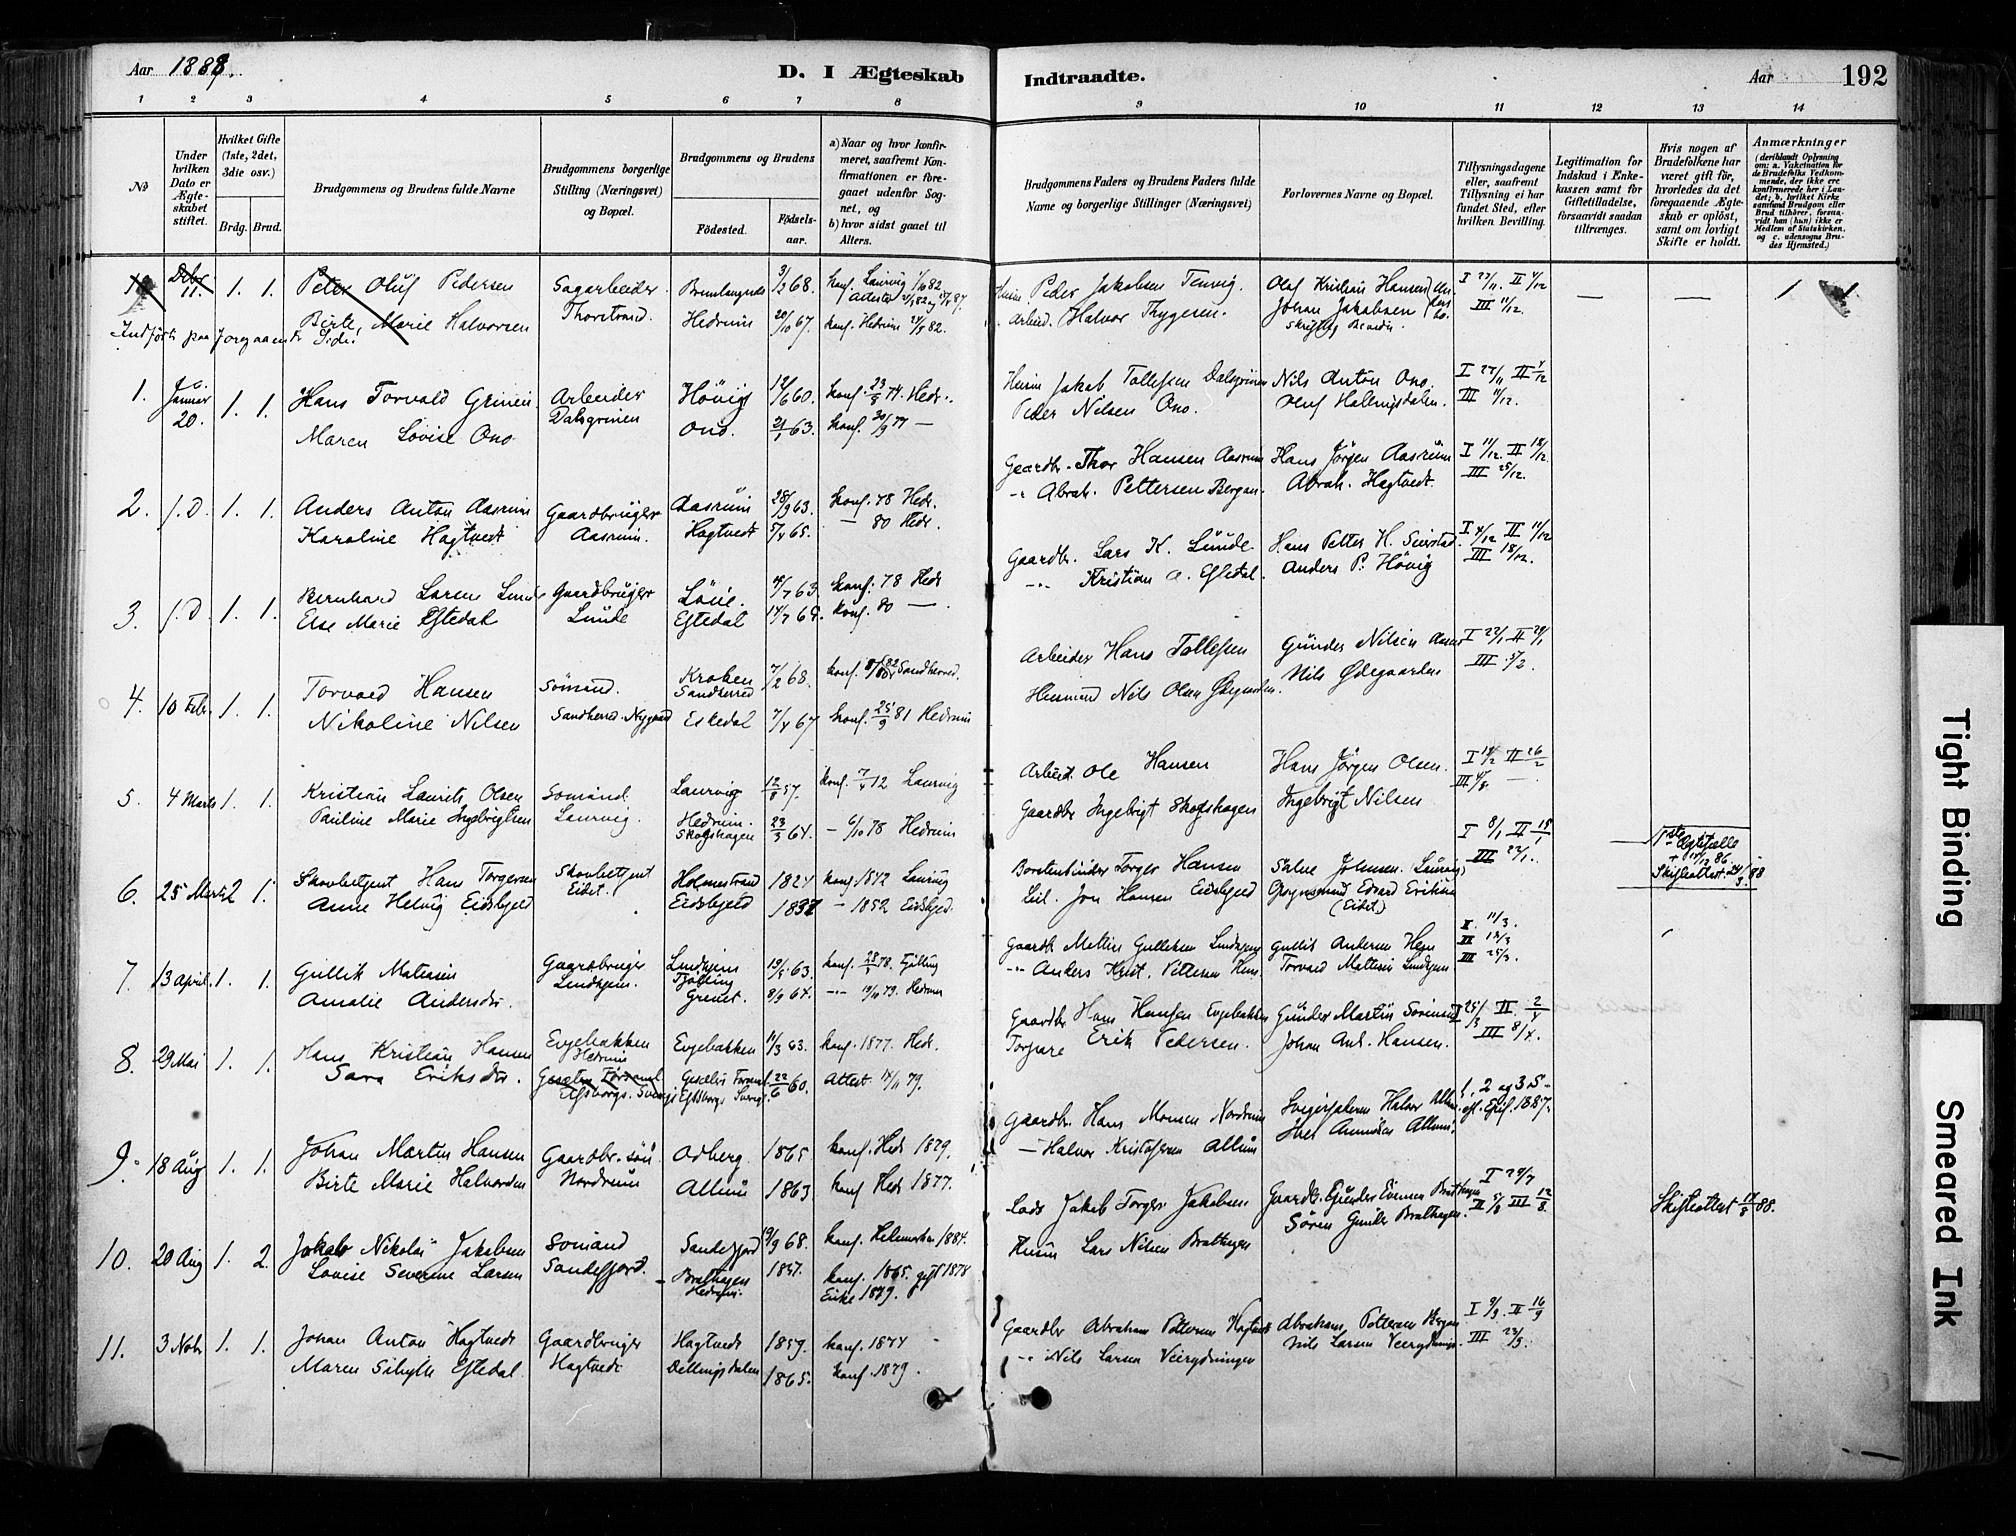 Aar 1888.
D. I Ægteskab Indtraadte.
Aar 192
1 2 3 4 5 6 7 8 9 10 11 12 13 14
No
Under hvilken Dato er Ægteskabet stiftet.
Hvilket Gifte (1ste, 2det, 3die osv.)
Brdg. Brud.
Brudgommens og Brudens fulde Navne
Brudgommens borgerlige Stilling (Næringsvei) og Bopæl.
Brudgommens og Brudens
Födested. Födsels-aar.
a) Naar og hvor konfirmeret, saafremt Konfirmationen er foregaaet udenfor Sognet, og
b) hvor sidst gaaet til Alters.
Brudgommens Faders og Brudens Faders fulde Navne og borgerlige Stillinger (Næringsvei)
Forlovernes Navne og Bopæl.
Tillysningsdagene eller, saafremt Tillysning ei har fundet Sted, efter hvilken Bevilling.
Legitimation for Indskud i Ænkekassen samt for Giftetilladelse, forsaavidt saadan tiltrænges.
Hvis nogen af Brudefolkene har været gift før, hvorledes da det foregaaende Ægteskab er oplöst, samt om lovligt Skifte er holdt.
Anmærkninger
(deriblandt Oplysning om: a. Vakcination for de Brudefolks Vedkommende, der ikke ere konfirmerede her i Landet; b. hvilket Kirkesamfund Brudgom eller Brud tilhører, forsaavidt han (hun) ikke er Medlem af Statskirken, og c. udensogns Brudes Hjemsted.)
11. 1. 1. Peter Oluf Pedersen Sagarbeider Brunlangnes 3/2 68. konf. Laurvig 1/10 82 Peder Jakobsen Tenvig. Olaf Kristian Hansen I 27/11. II 4/12
Birte Marie Halvorsen Thorstrand. Hedrum 20/10 67. konf. Hedrum 24/9 82. Arbeid. Halvor Thygesen. Johan Jakobsen III 11/12.
Indført paa foregaaende Side.
1. Januar 20. 1. 1. Hans Torvald Grinen Arbeider Hövig 12/6 60. konf. 23/8 74. Hedr. Jakob Tollefsen Dalsgrinen Nils Anton Ono. I 27/11 II 4/12
Maren Lovise Ono Dalsgrinen Ono. 21/1 63. konf. 30/9 77 — Peder Nilsen Ono. Oluf Hallingsdalen. III 11/12.
2. s. D. 1. 1. Anders Anton Aasrum Gaardbruger Aasrum 28/9 63. konf. 78 Hedr. Gaardbr. Thor Hansen Aasrum Hans Jörgen Aasrum I 11/12. II 18/12.
Karoline Hagtvedt Aasrum. Hagtvedt 5/4 65. — 80 Hedr. Abrah. Pettersen Bergan. Abrah. Hagtvedt. III 25/12.
3. s. D 1. 1. Bernhard Laren Lunde Gaardbruger 4/7 63. konf. 78 Hedr Gaardbr. Lars K. Lunde Hans Petter H. Seierstad I 4/12 II 11/12
Else Marie Eftedal Lunde Eftedal 14/7 64. konf. 80 —. Kristian A. Eftedal. Anders P. Hövig III 18/12.
4. 10 Febr. 1. 1. Torvald Hansen Sömand. Kroken Sandherred 7/2 68. konf. Sandherred. Arbeider Hans Tollefsen Gunder Nilsen I 22/1 II 29/1
Nikoline Nilsen Sandherred. Nygaard Eskedal 7/4 67 konf. 25/9 81 Hedrum Husmand Nils Olsen Ödegaarden. Nils Ødegaarden III 5/2
5. 4 Marts 1. 1. Kristian Laurits Olsen Somand Laurvig 12/8 57. konf. 7/4 72 Laurvig Arbeid. Ole Hansen Hans Jörgen Olsen. I 19/2 II 26/2
Pauline Marie Ingebrigtsen Laurvig. Hedrum. Skogshagen 23/3 64. — 6/10 78 Hedrum Gaardbr Ingebrigt Skogshagen Ingebrigt Nilsen III 4/3. —
6. 25 Marts 2 1. Skovbetjent Hans Torgersen Skovbetjent Holmestrand 1824 konf. 1842 Laurvig Borstenbinder Torger Hansen Salve Johnsen (Laurvig) I 8/1 II 15/1 III 22/1. 1ste Ægtefælle + 86 Skifteattest 24/3 88
Anne Helvig Eidsbjerd Eidet. Eidsbjerd 1837 — 1852 Eidsbjerd. Leil. Jon Hansen Eidsbjerd Edvard Eriksen (Eidet)
7. 13 April. 1. 1. Gullik Matisen Gaardbruger Lindhjem Tjölling 19/5 63. konf. 28/9 78. Tjölling Gaardb Mathias Gulliksen Lindhjem Gullik Andersen Hem I. 11/3. II 18/3
Amalie Andersdr. Lindhjem. Grevet. 8/9 64. 79. Hedrum Anders Krist. Pettersen Hem. Torvald Mathisen Lindhjem III 25/3.
8. 29 Mai 1. 1. Hans Kristian Hansen Evjebakken Hedrum Evjebakken 11/3 63. konf. 1877. Hedr. Gaardbr Hans Hansen Evjebakken Gunder Martin Sörensen I 25/3 II. 2/4
Sara Eriksdr. Elfsborgs. Sverige Elfsborgs Sverige 22/6 60. Attest 79. Torpare Erik Pedersen. Johan And. Hansen. III 8/4.
9. 18 Aug 1. 1. Johan Martin Hansen Gaardbr. sön Odberg. 1865 konf. Hedr 1879. Gaardbr. Hans Monsen Nordrum Svigerfaderen Halvor Allum. 1. 2 og 3 S. eft. Epif. 1887.
Birte Marie Halvorsen Nordrum Allum 1863 konf Hedr 1877. — Halvor Kristofersen Allum Iver Amundsen Allum.
10. 20 Aug 1. 2. Jakob Nikolai Jakobsen Somand Sandefjord 19/9 68. konf. 1884. Lods Jakob Torger Jakobsen Gaardb. Gunder Evensen Bratthagen I 29/7 II 5/8 III 12/8. Skifteattest 17/8 88.
Lovise Severine Larsen Sandefjord. Bratthagen Hedrum. konf. 1865. gift 1878 Enke 1879. Husm Lars Nilsen Bratthagen Sören Gunder Bratthagen.
11. 3 Nobr 1. 1. Johan Anton Hagtvedt Gaardbruger Hagtvedt 1859. konf. 1874 Gaardbr Abraham Pettersen Hagtvedt Abraham Pettersen Bergan I 9/9. II 16/9
Maren Sibylle Eftedal Hagtvedt Dellingsdalen 1865. konf. 1879. Nils Larsen Veirydningen Nils Larsen Veirydningen. III 23/9.
Tight Binding
Smeared Ink